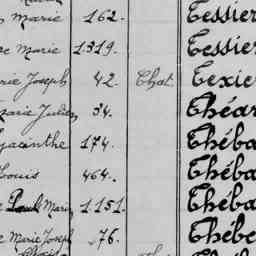 Marie 162. Tessier
Marie 1319. Tessier
Joseph 42. Chat. Texier
Marie Julien 34. Théar
Hyacinthe 174. Théba
Louis 464. Théba
Paul Marie 1151. Théba
Marie Joseph 76. Thébe